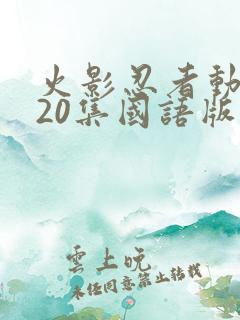 火影忍者動
20集國語版
雲上晚
未经同意禁止转载